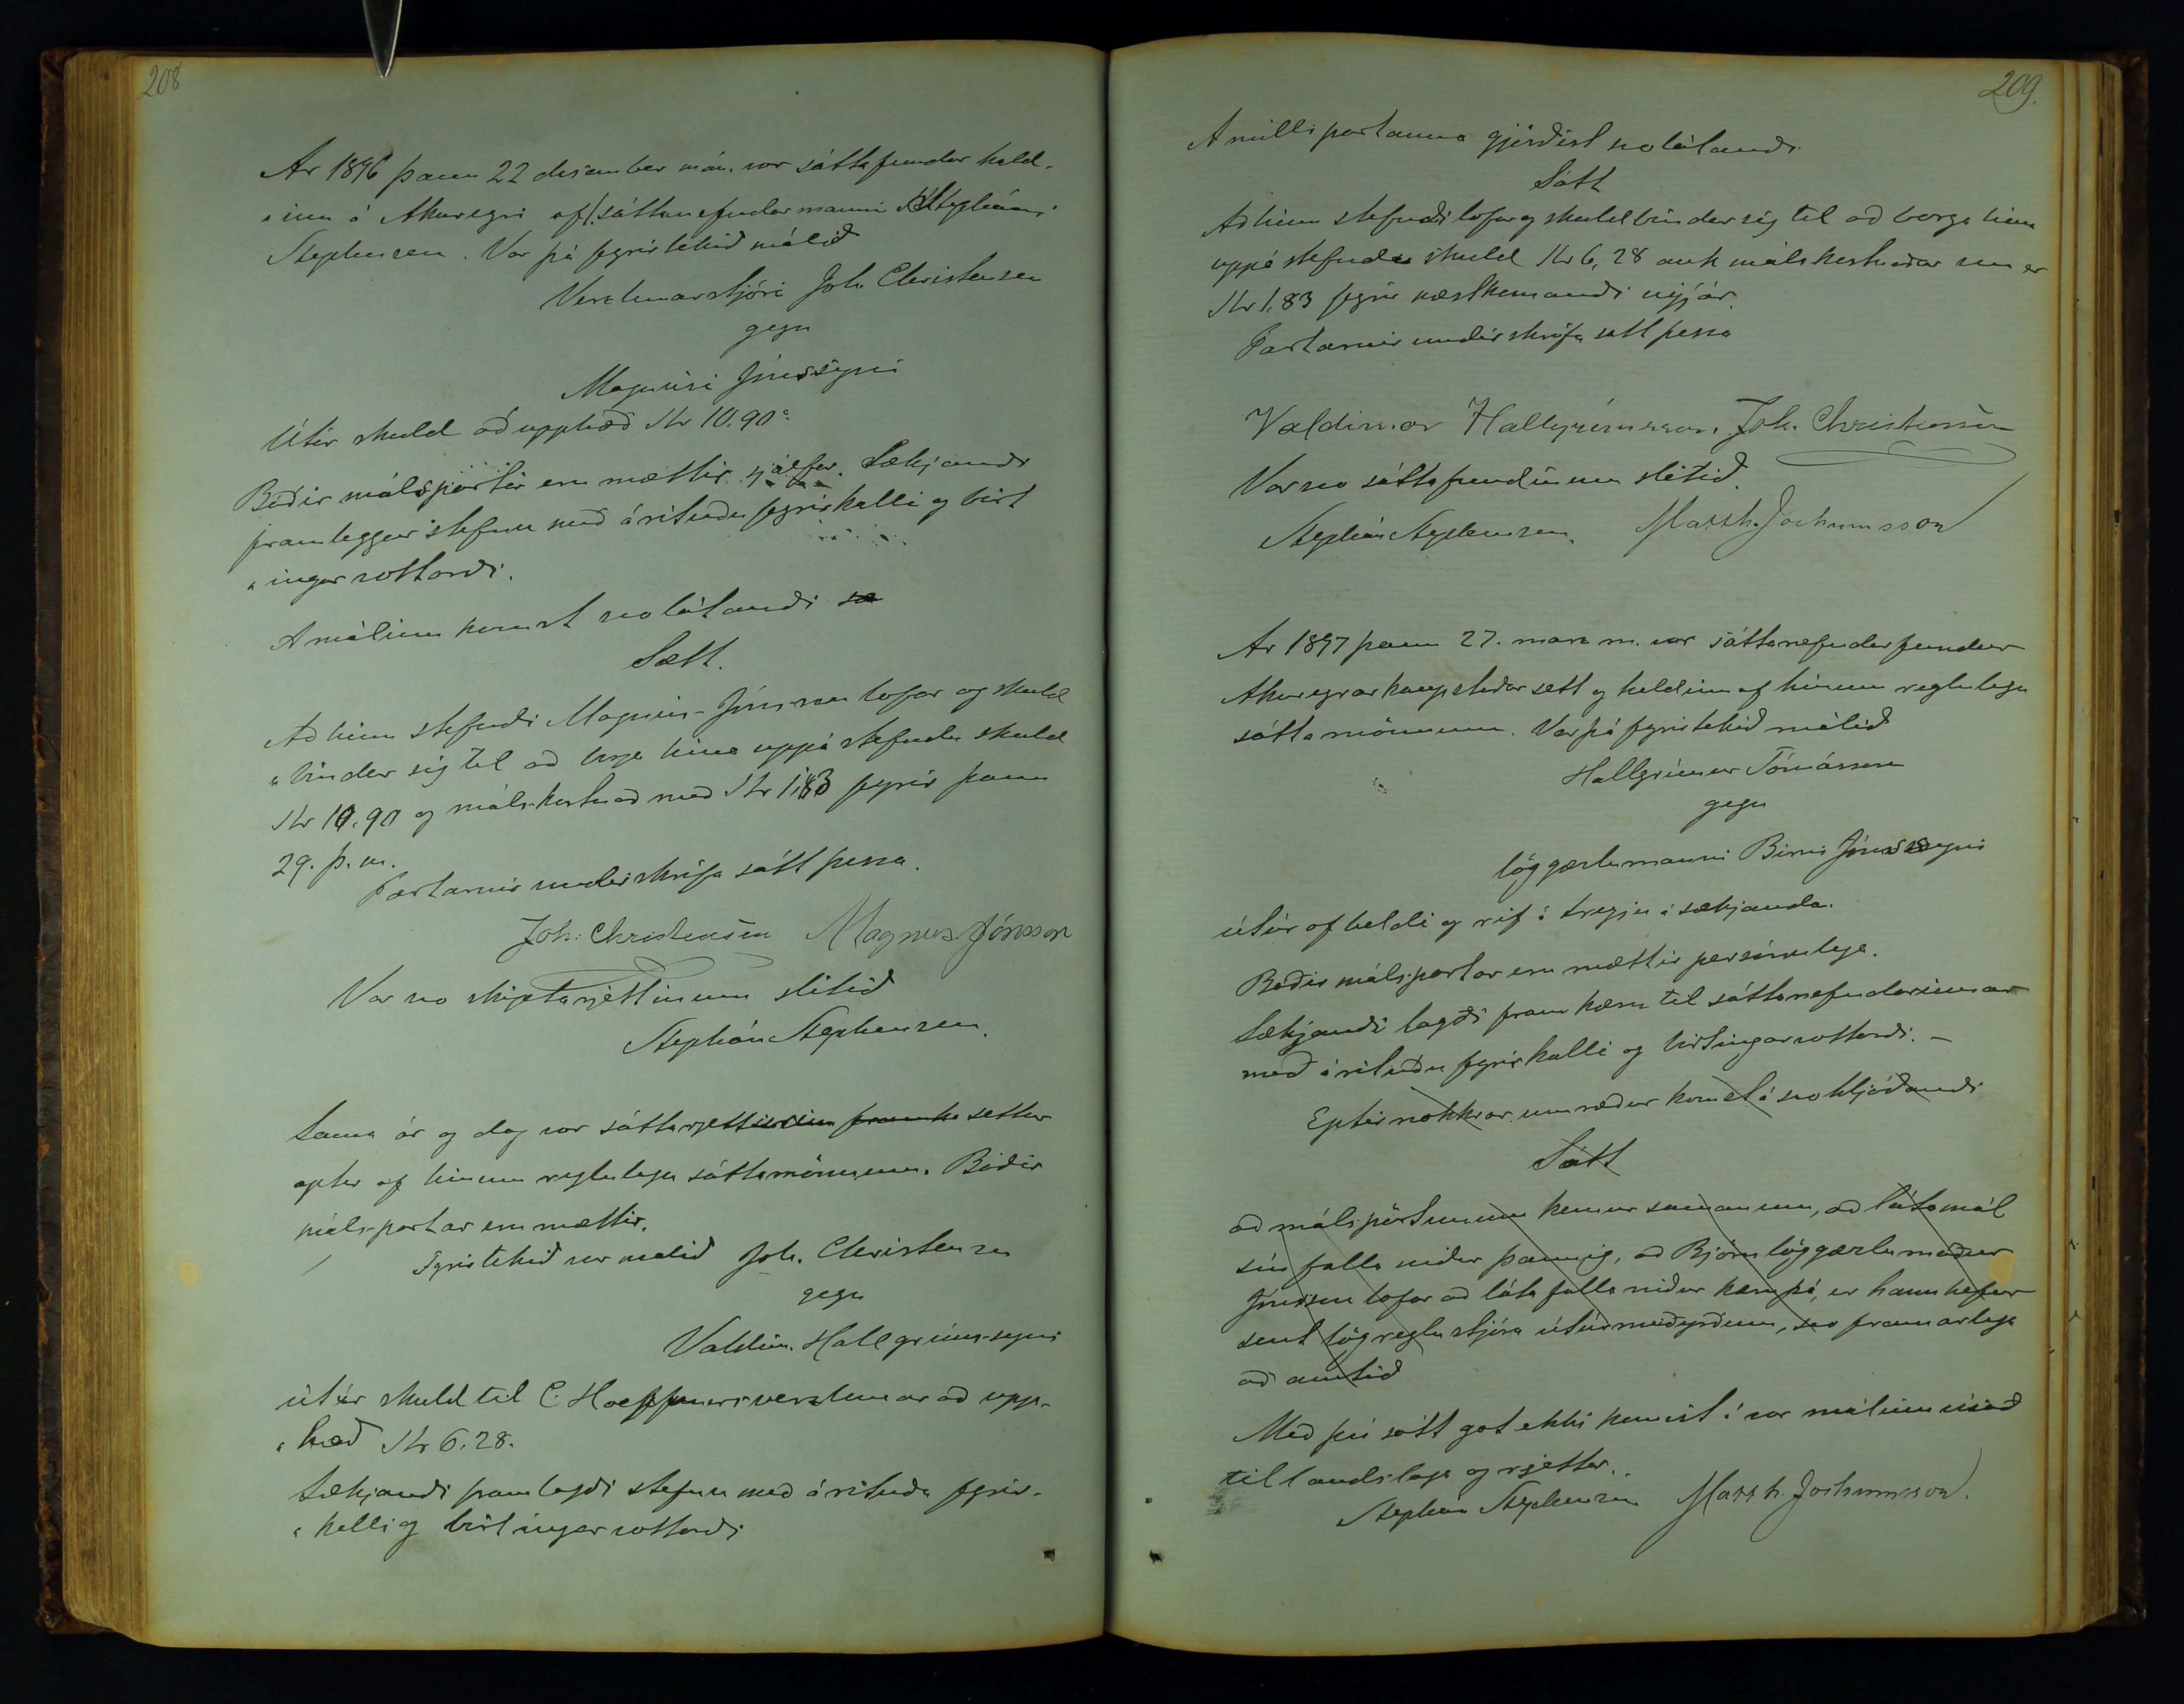 208
Ar 1896 þann 22 desember mán. var sáttafundur hald-
„inn á Akureyri af sáttanefndarmanni Stepháni
Stephensen. Var þá fyrirtekið málið
Verzlunarstjóri Joh. Christensen
gegn
Magnúsi Jónssyni
Útúr skuld að upphæð Kr 10.90
Báðir málspartar eru mættir sjálfir. Sækjandi
framleggur stefnu með árituðu fyrirkalli og birt
„ingarvottorði.
A málinu komst svolátandi sæ
Sætt.
Að hinn stefndi Magnús Jónsson lofar og skuld
„bindur sig til að borga hina uppá stefndu skuld
Kr 10.90 og málskostnað með Kr 1,83 fyrir þann
29. þ. m.
Partarnir underskrifa sátt þessa.
Joh. Christensen Magnus Jónsson
Var svo skiptarjettinum slitið
Stephán Stephensen.
Sama ár og dag var sáttarjetturinn framha settur
aptur af hinum reglulegu sáttamönnum. Báðir
málspartar eru mættir.
Fyrirtekið var málið Joh. Christensen
gegn
Valdim. Hallgrímssyni
útúr skuld til C. Hoepfnersverzlunar að upp-
„hæð Kr 6.28.
Sækjandi framlagði stefnu með árituðu fyrir-
„kalli og birtingarvottorði
209.
A milli partanna gjörðist svolátandi
Sátt
Að hinn stefndi lofar og skuldbindur sig til að borga hina
uppástefndu skuld Kr 6,28 auk málskostnaðar sem er
Kr 1,83 fyrir næstkomandi nýjár.
Partarnir undirskrifa sátt þessa
Valdimar Hallgrímsson. Joh. Christensen
Var svo sáttafundinum slitið.
Stephán Stephensen. Matth. Jochumsson
Ar 1897 þann 27. marz m. var sáttanefndarfundur
Akureyrarkaupstaðar sett og haldinn af hinum reglulegu
sáttamönnum. Var þá fyrirtekið málið
Hallgrímur Tómásson
gegn
löggæzlumanni Birni Jónssyni
útúr ofbeldi og rif á treyju á sækjanda.
Báðir málspartar eru mættir persónulega.
Sækjandi lagði fram kæru til sáttanefndarinnar
með árituðu fyrirkalli og birtingarvottorði. –
Eptir nokkrar umræður komst á svohljóðandi
Sátt
að málspörtunum kemur saman um, að láta mál
sín falla niður þannig, að Björn löggæzlumaður
Jónsson lofar að láta falla niður kæru þá, er hann hefur
sent lögreglustjóra útúr meiðyrðum, svo framarlega
að amtið
Með því sátt gat ekki komist á var málinu vísað
til landslaga og rjettar.
Stephán Stephensen Matth. Jochumsson.